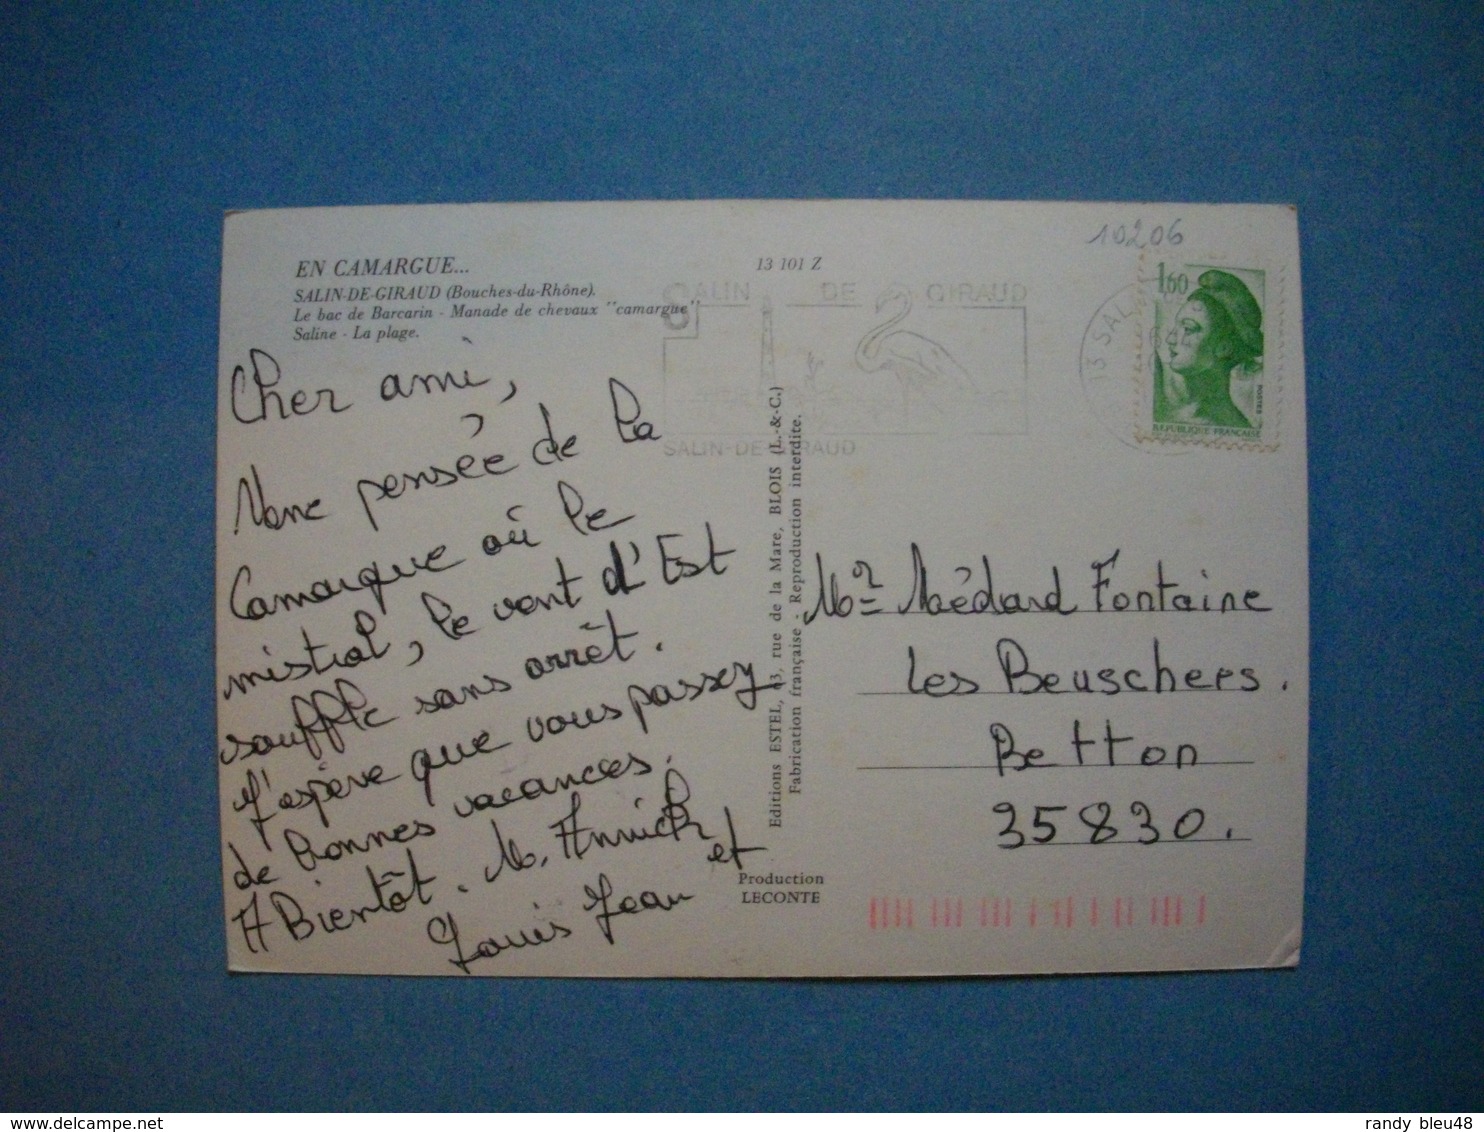 10206
EN CAMARGUE...
13 101 Z
SALIN-DE-GIRAUD (Bouches-du-Rhône).
Le bac de Barcarin - Manade de chevaux "camargue"
Saline - La plage.
SALIN DE GIRAUD
SALIN-DE-GIRAUD
13 SAL
1,60
POSTES
REPUBLIQUE FRANÇAISE
Cher ami,
Une pensée de la
Camargue où le
mistral, le vent d'Est
souffle sans arrêt.
J'espère que vous passez
de bonnes vacances.
A Bientôt. M. Annick et
Louis Jean
Editions ESTEL, 63, rue de la Mare, BLOIS (L.-&-C.)
Fabrication française - Reproduction interdite.
Production
LECONTE
Mr Médard Fontaine
Les Beuschers.
Betton
35830.
randy_bleu48